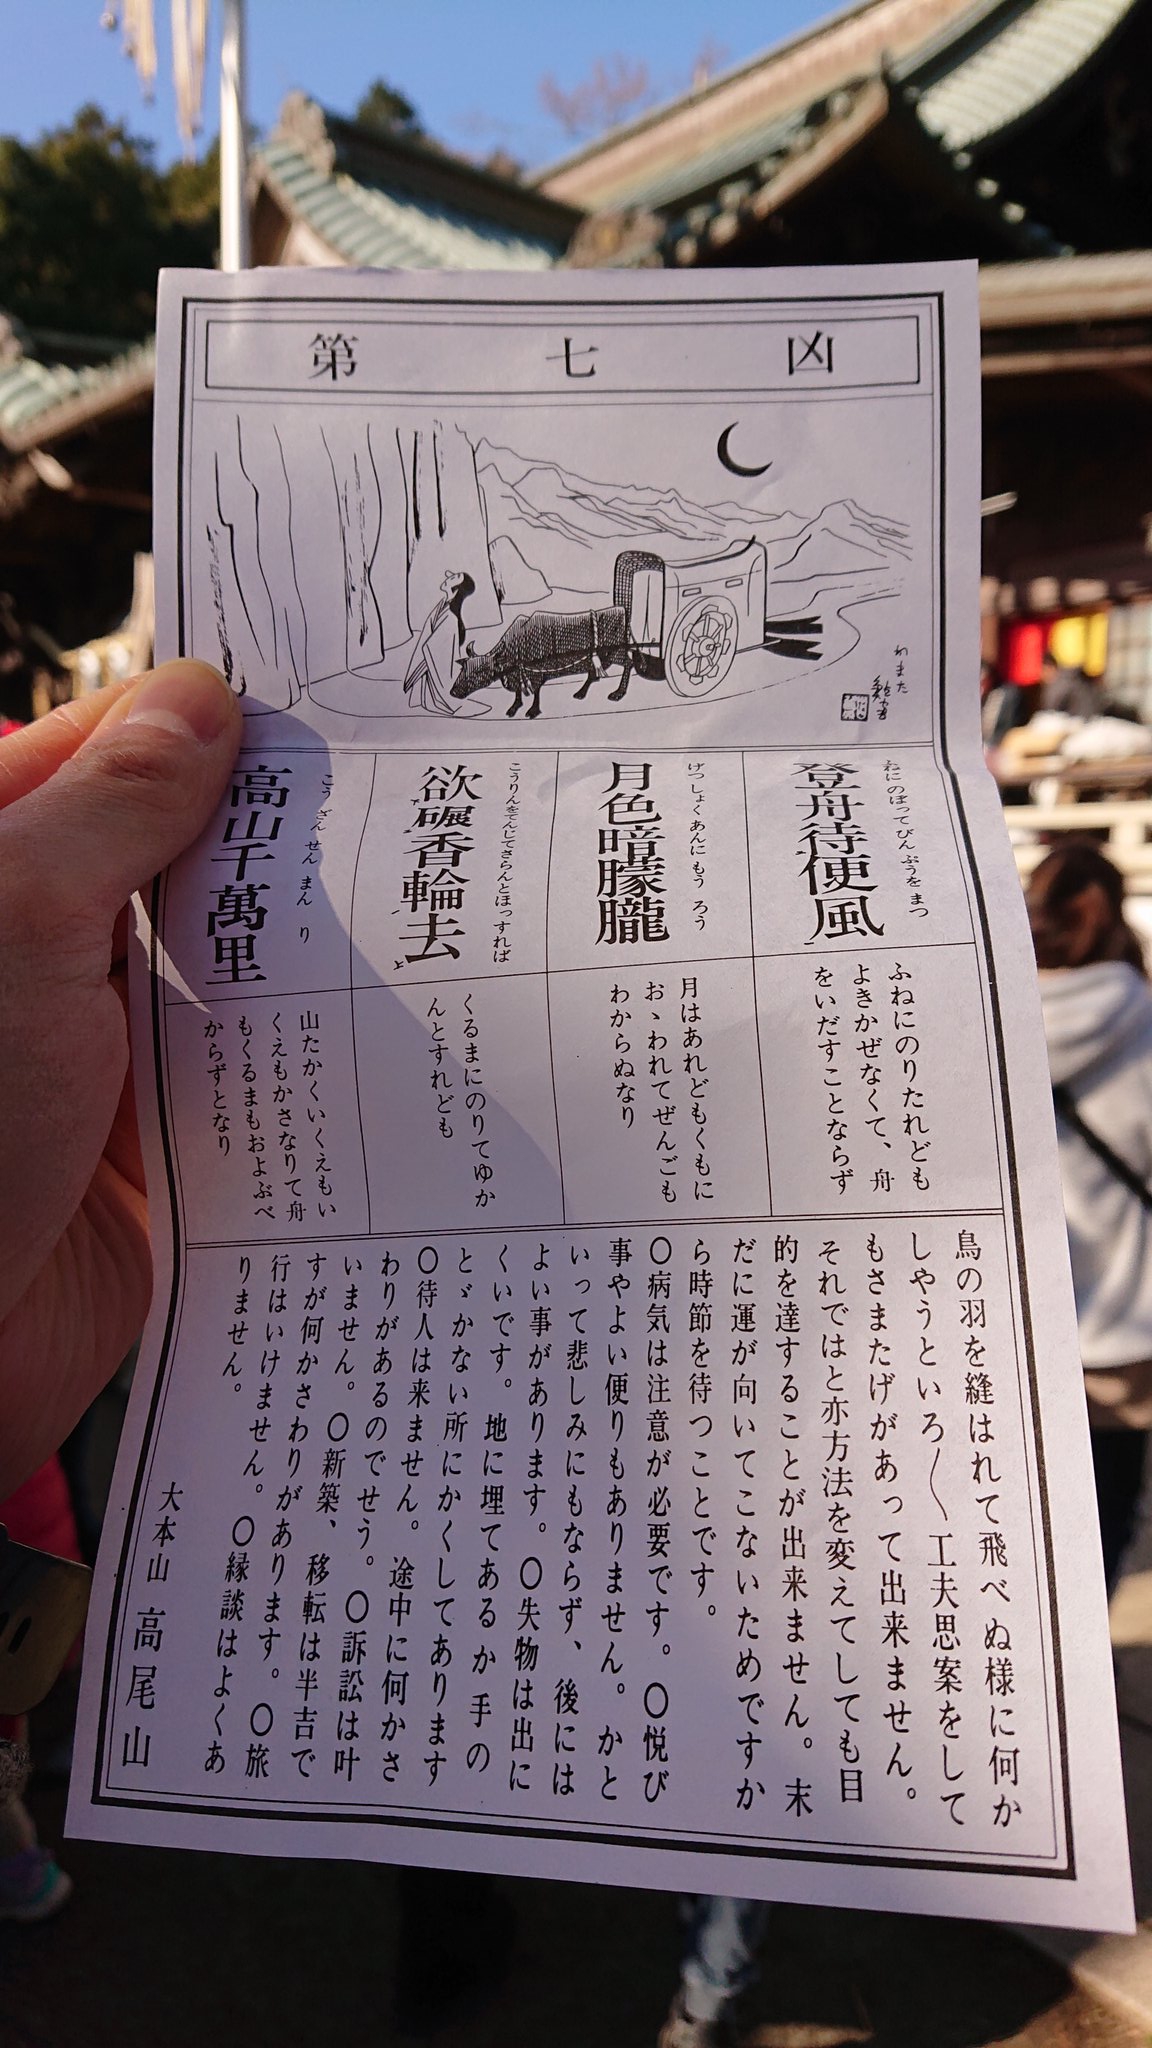 第七凶
わまた
ふねにのぼってびんぷうをまつ
登舟待便風
げっしょくあんにもうろう
月色暗朦朧
こうりんをてんじてさらんとほっすれば
欲碾香輪去
こうざんせんまんり
高山千萬里
ふねにのりたれども
よきかぜなくて、舟
をいだすことならず
月はあれどもくもに
おゝわれてぜんごも
わからぬなり
くるまにのりてゆか
んとすれども
山たかくいくえもい
くえもかさなりて舟
もくるまもおよぶべ
からずとなり
鳥の羽を縫はれて飛べぬ様に何か
しやうといろ〳〵工夫思案をして
もさまたげがあって出来ません。
それではと亦方法を変えてしても目
的を達することが出来ません。末
だに運が向いてこないためですか
ら時節を待つことです。
〇病気は注意が必要です。〇悦び
事やよい便りもありません。かと
いって悲しみにもならず、後には
よい事があります。〇失物は出に
くいです。地に埋てあるか手の
とゞかない所にかくしてあります
〇待人は来ません。途中に何かさ
わりがあるのでせう。〇訴訟は叶
いません。〇新築、移転は半吉で
すが何かさわりがあります。〇旅
行はいけません。〇縁談はよくあ
りません。
大本山 高尾山